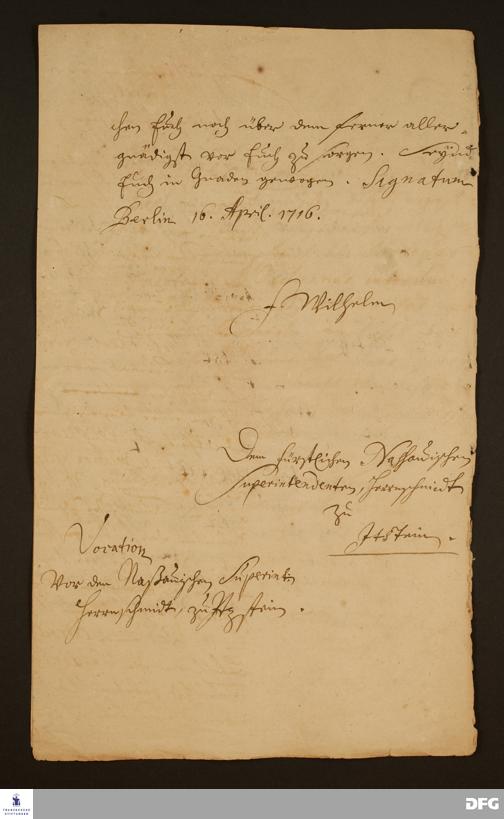 chen Euch noch über dem ferner aller-
gnädigst vor Euch zu sorgen. Seynd
Euch in Gnaden gewogen. Signatum
Berlin 16. April. 1716.
F. Wilhelm
Dem Fürstlichen Nassauischen
Superintendenten, Herrnschmidt
zu
Itstein.
Vocation
Vor den Naßauischen Superint.
Herrnschmidt, zu Itzstein.
FRANCKESCHE
STIFTUNGEN
DFG